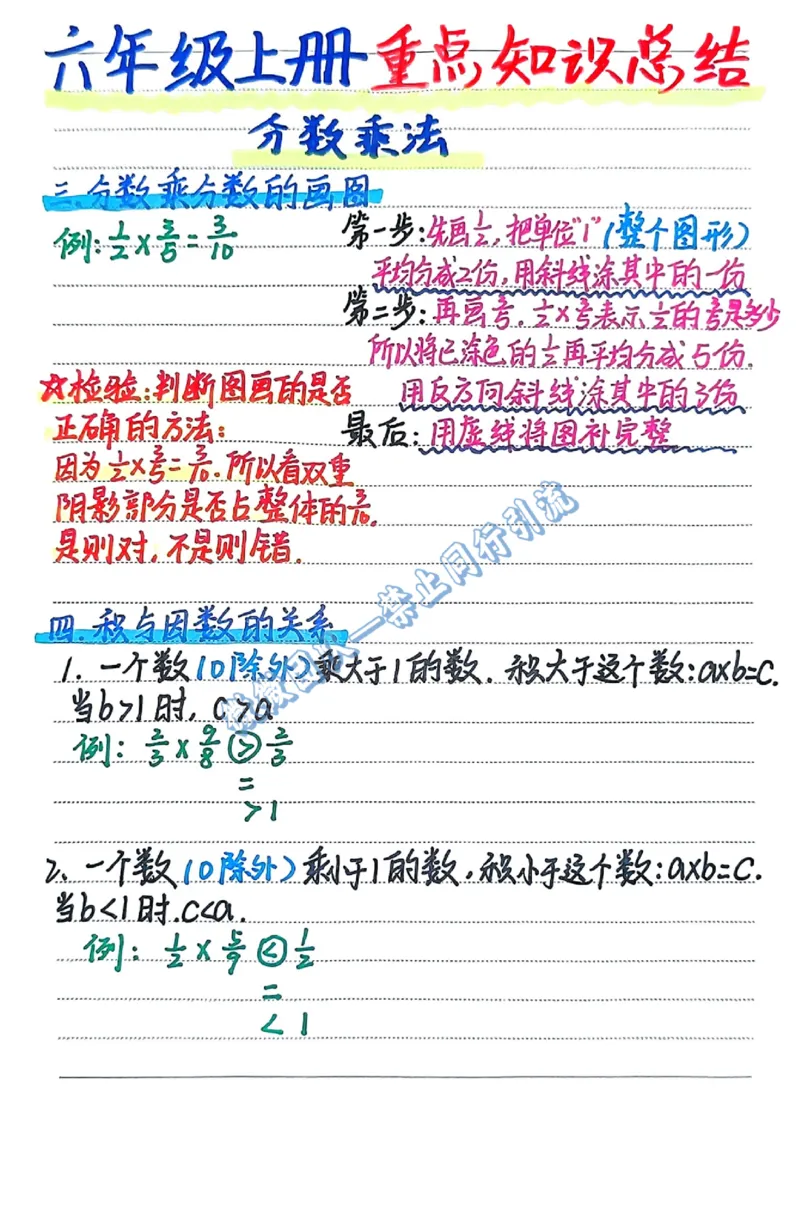 六年级上册重点知识总结
分数乘法
三.分数乘分数的画图
例:1/2×3/5=3/10
第一步:先画1/2,把单位"1"(整个图形)
平均分成2份,用斜线涂其中的一份
第二步:再画3/5.1/2×3/5表示1/2的3/5是多少
所以将已涂色的1/2再平均分成5份.
用反方向斜线涂其中的3份
最后:用虚线将图补完整
☆检验:判断图画的是否
正确的方法:
因为1/2×3/5=3/10.所以看双重
阴影部分是否占整体的3/10.
是则对,不是则错.
禁止同行引流
四.积与因数的关系
1.一个数(0除外)乘大于1的数.积大于这个数:a×b=c.
当b>1时,c>a
例:2/3×9/8>2/3
=
>1
2、一个数(0除外)乘小于1的数,积小于这个数:a×b=c.
当b<1时.c<a.
例:1/2×5/9<1/2
=
<1